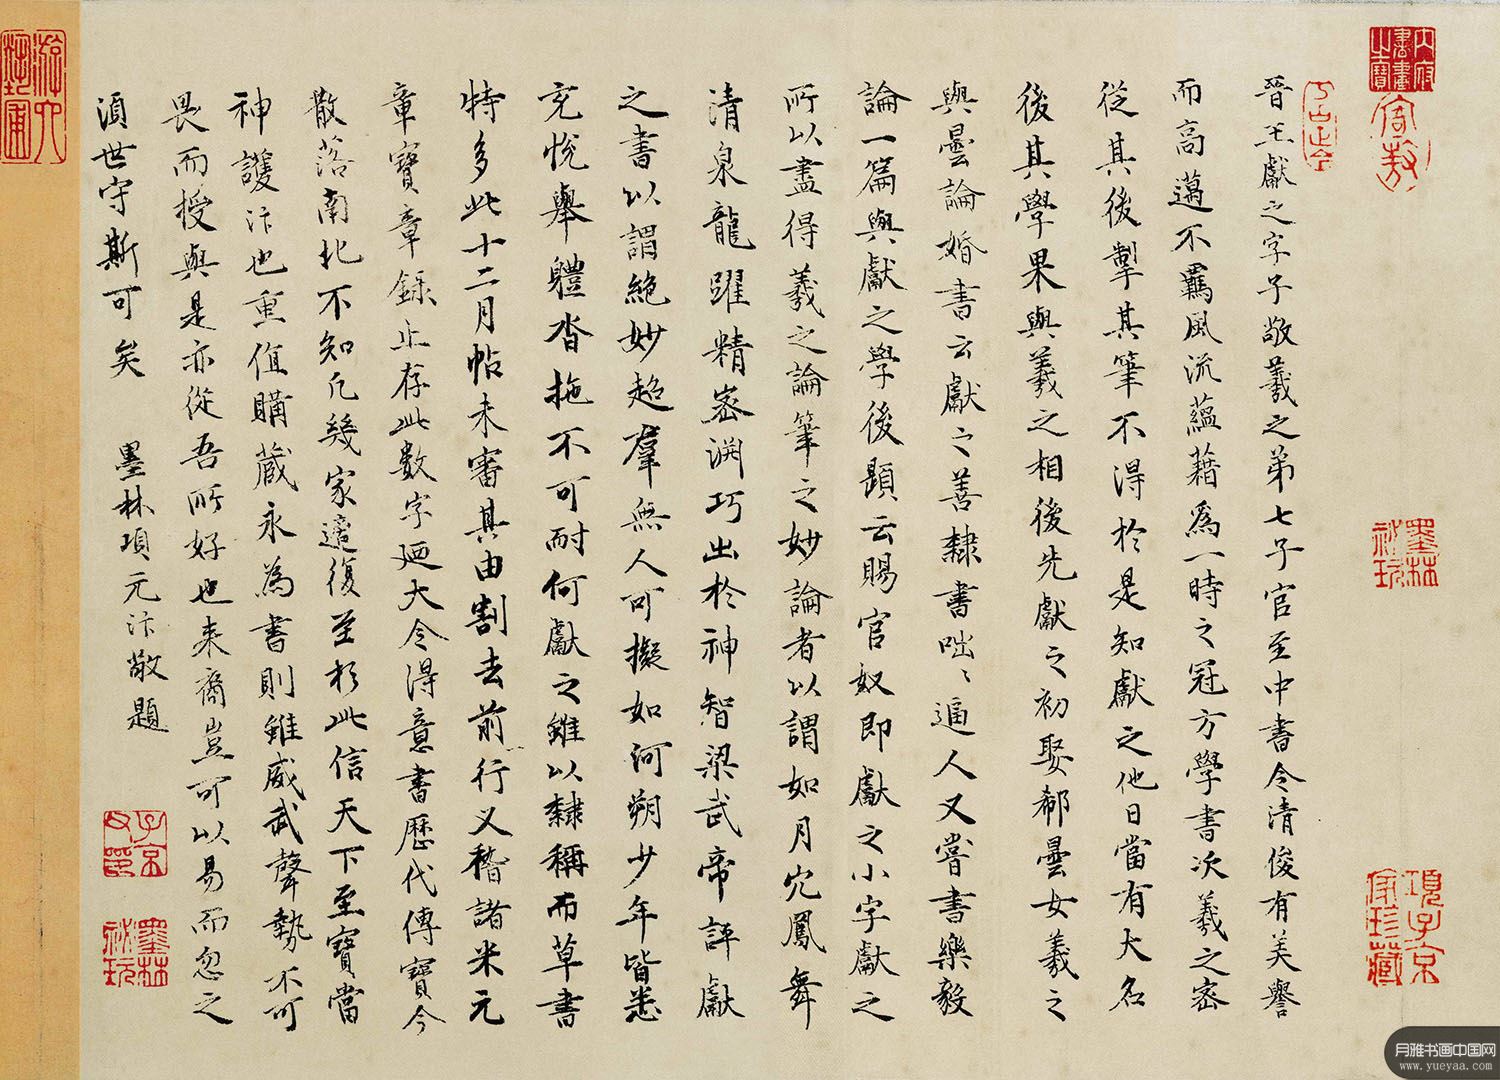 晉王獻之字子敬羲之弟七子官至中書令清俊有美譽
而高邁不羈風流蘊藉為一時之冠方學書次羲之密
從其後掣其筆不得於是知獻之他日當有大名
後其學果與羲之相後先獻之初娶郗曇女羲之
與曇論婚書云獻之善隸書咄〻逼人又嘗書樂毅
論一篇與獻之學後題云賜官奴即獻之小字獻之
所以盡得羲之論筆之妙論者以謂如月穴鳳舞
清泉龍躍精密淵巧出於神智梁武帝評獻
之書以謂絕妙超群無人可擬如河朔少年皆悉
充悅舉體沓拖不可耐何獻之雖以隸稱而草書
特多此十二月帖未審其由割去前行又稽諸米元
章寶章錄止存此數字廼大令得意書歷代傳寶今
散落南北不知凡幾家適復至於此信天下至寶當
神護汴也重值購藏永為書則雖威武聲勢不可
畏而授與是亦從吾所好也來裔豈可以易而忽之
須世守斯可矣 墨林項元汴敬題
內府書畫之寶
墨林祕玩
項子京家珍藏
子京父印
墨林祕玩
月雅书画中国网
www.yueyaa.com